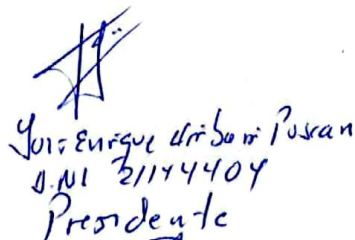 Luis Enrique Uribarri Puscan
D.NI 21144404
Presidente